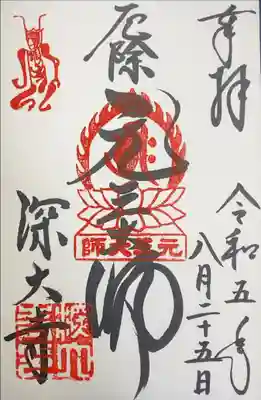 奉拝
令和五年
八月二十五日
厄除
元三大師
元三大師
深大寺